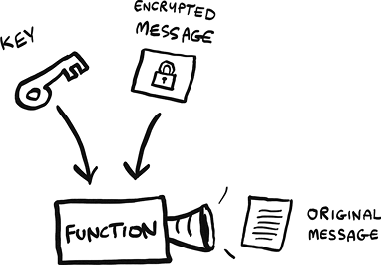 KEY
ENCRYPTED
MESSAGE
FUNCTION
ORIGINAL
MESSAGE